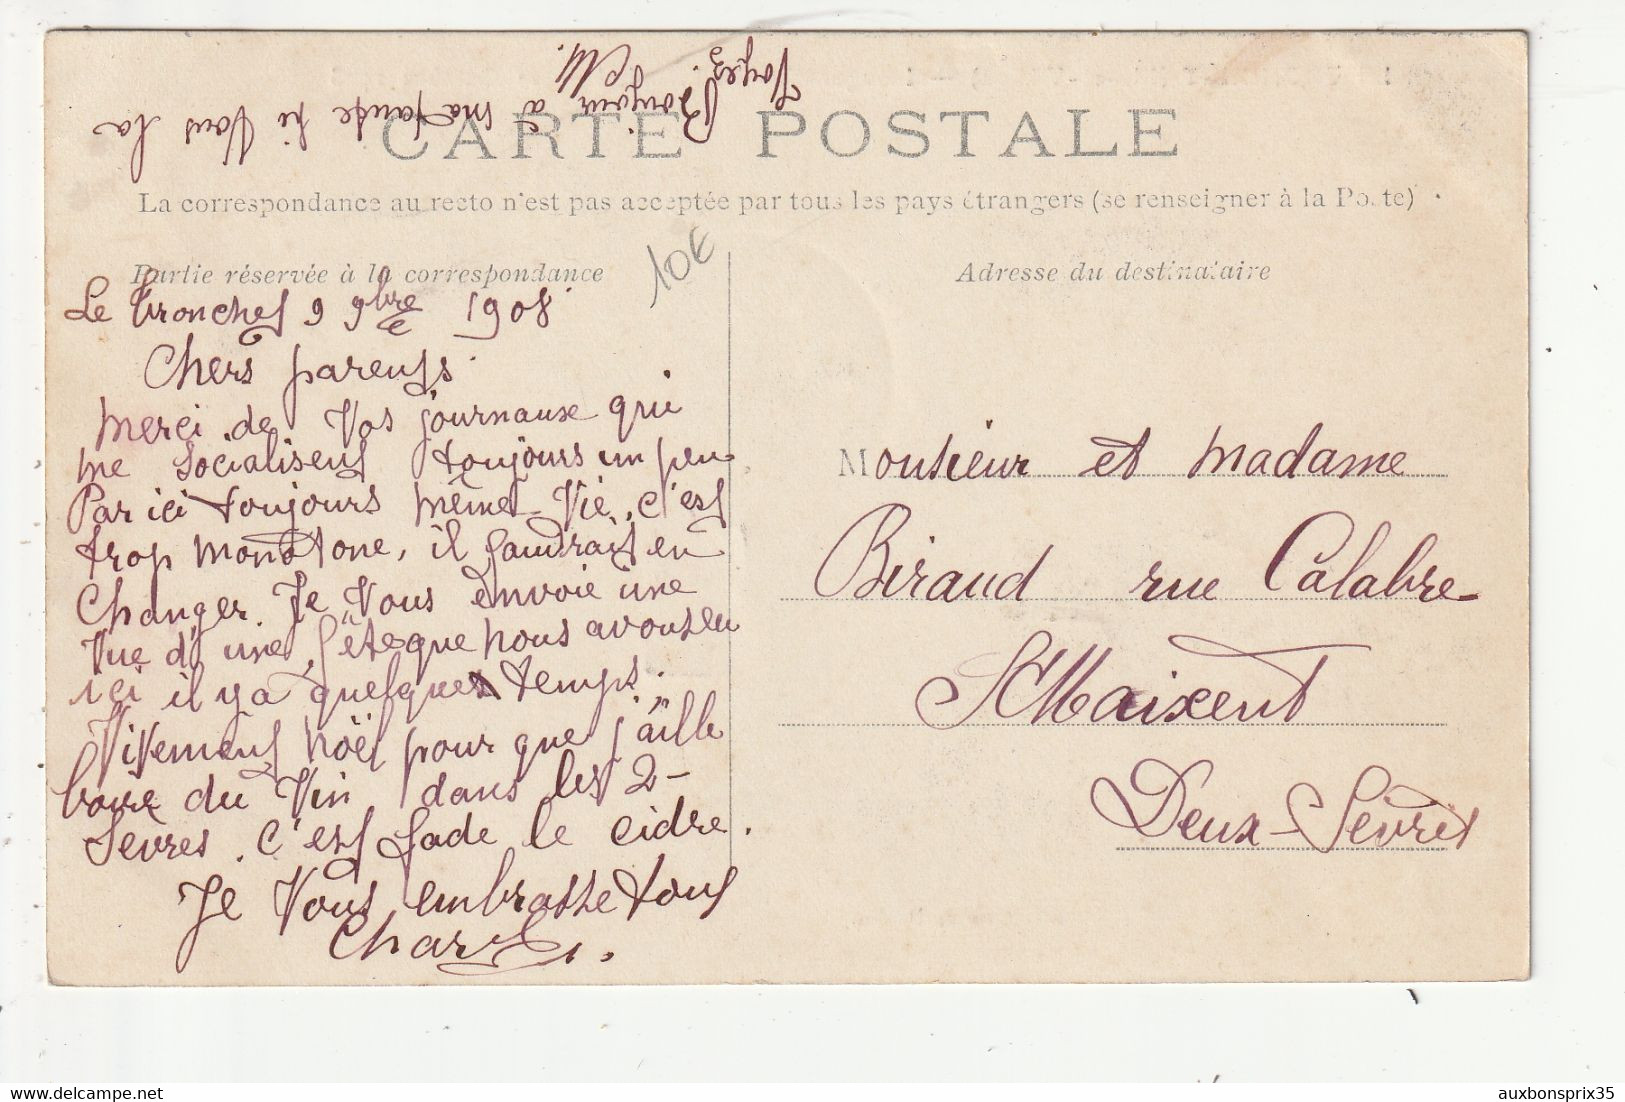 CARTE POSTALE
La correspondance au recto n'est pas acceptée par tous les pays étrangers (se renseigner à la Poste)
Partie réservée à la correspondance
Adresse du destinataire
10€
Bonjour à ma tante si vous la
voyez.
Le Tronchet 9 9bre 1908
Chers parents.
Merci de vos journaux qui
me socialisent toujours un peu
Par ici toujours même vie, c'est
trop monotone, il faudrait en
changer. Je vous envoie une
vue d'une fête que nous avons eu
ici il y a quelques temps.
Vivement Noël pour que j'aille
boire du vin dans les 2-
Sevres. C'est fade le cidre.
Je vous embrasse tous
Charles.
Monsieur et Madame
Biraud rue Calabre
St Maixent
Deux-Sèvres
auxbonsprix35